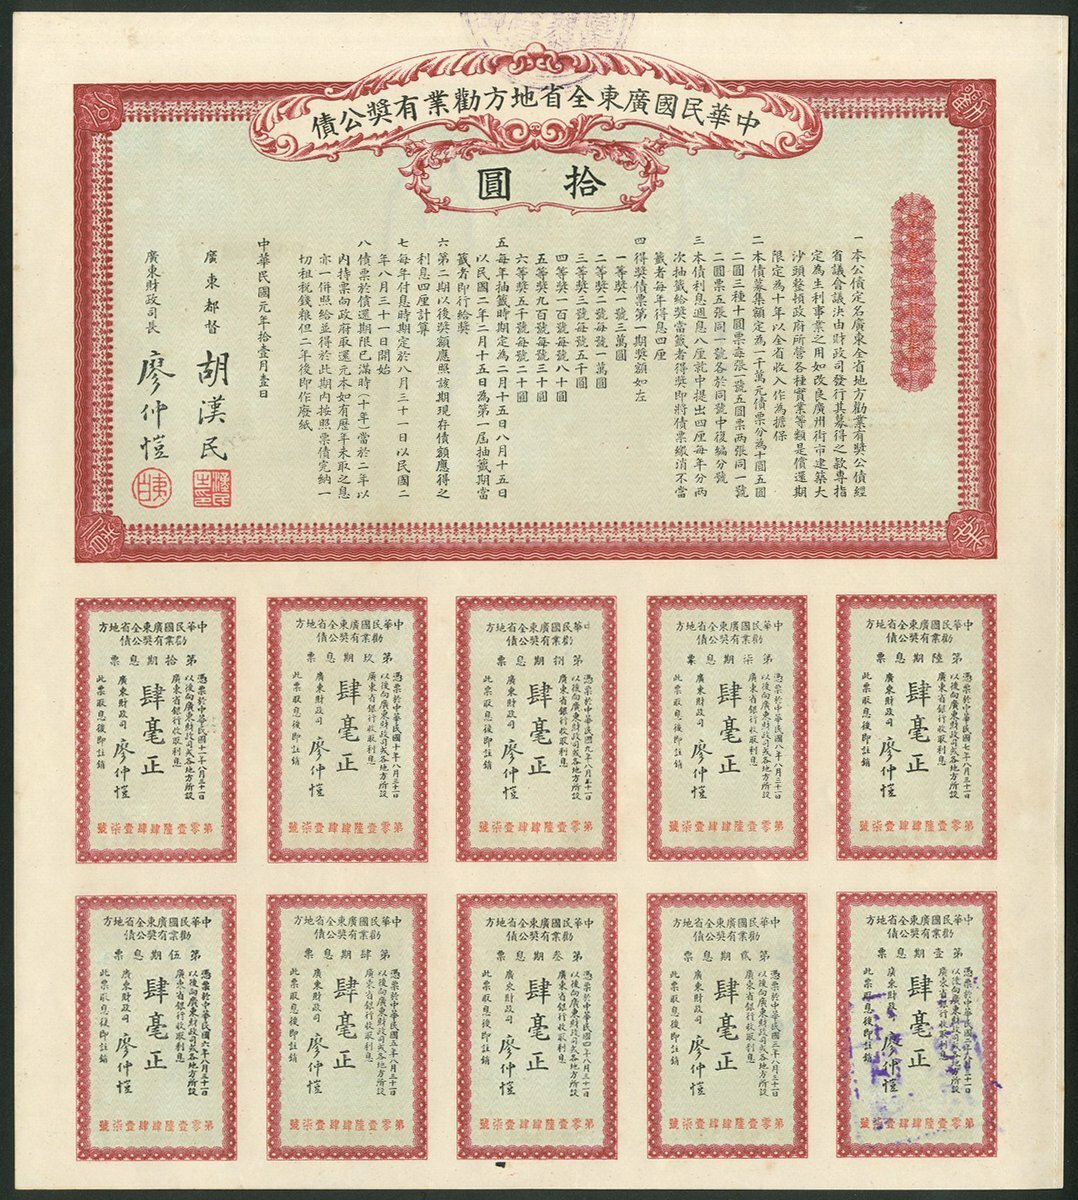 中華民國廣東全省地方勸業有獎公債
拾圓
一本公債定名廣東全省地方勸業有獎公債經
省議會議決由財政司發行其募得之款專指
定為生利事業之用如改良廣州街市建築大
沙頭整頓政府所營各種實業等類是償還期
限定為十年以全省收入作為擔保
二本債募集額定為一千萬元債票分為十圓五圓
二圓三種十圓票每張一號五圓票兩張同一號
二圓票五張同一號各於同號中復編分號
三本債利息週息八厘就中提出四厘每年分兩
次抽籤給獎當籤者得獎即將債票繳消不當
籤者每年得息四厘
四得獎債票第一期獎額如左
一等獎一號三萬圓
二等獎二號每號一萬圓
三等獎三號每號五千圓
四等獎一百號每號八十圓
五等獎九百號每號三十圓
六等獎五千號每號二十圓
五每年抽籤時期定為二月十五日八月十五日
以民國二年二月十五日為第一屆抽籤期當
籤者即行給獎
六第二期以後獎額應照該期現存債額應得之
利息四厘計算
七每年付息時期定於八月三十一日以民國二
年八月三十一日開始
八債票於償還期限已滿時（十年）當於二年以
內持票向政府取還元本如有歷年未取之息
亦一併照給並得於此期內按照票債完納一
切租稅錢糧但二年後即作廢紙
中華民國元年拾壹月壹日
廣東都督 胡漢民
廣東財政司長 廖仲愷
中華民國廣東全省地方
勸業有獎公債
第陸期息票
憑票於中華民國七年八月三十一日
以後向廣東財政司或各地方所設
廣東省銀行收取利息
肆毫正
廣東財政司 廖仲愷
此票取息後即註銷
第零壹陸肆肆壹柒號
中華民國廣東全省地方
勸業有獎公債
第柒期息票
憑票於中華民國八年八月三十一日
以後向廣東財政司或各地方所設
廣東省銀行收取利息
肆毫正
廣東財政司 廖仲愷
此票取息後即註銷
第零壹陸肆肆壹柒號
中華民國廣東全省地方
勸業有獎公債
第捌期息票
憑票於中華民國九年八月三十一日
以後向廣東財政司或各地方所設
廣東省銀行收取利息
肆毫正
廣東財政司 廖仲愷
此票取息後即註銷
第零壹陸肆肆壹柒號
中華民國廣東全省地方
勸業有獎公債
第玖期息票
憑票於中華民國十年八月三十一日
以後向廣東財政司或各地方所設
廣東省銀行收取利息
肆毫正
廣東財政司 廖仲愷
此票取息後即註銷
第零壹陸肆肆壹柒號
中華民國廣東全省地方
勸業有獎公債
第拾期息票
憑票於中華民國十一年八月三十一日
以後向廣東財政司或各地方所設
廣東省銀行收取利息
肆毫正
廣東財政司 廖仲愷
此票取息後即註銷
第零壹陸肆肆壹柒號
中華民國廣東全省地方
勸業有獎公債
第壹期息票
憑票於中華民國二年八月三十一日
以後向廣東財政司或各地方所設
廣東省銀行收取利息
肆毫正
廣東財政司 廖仲愷
此票取息後即註銷
第零壹陸肆肆壹柒號
中華民國廣東全省地方
勸業有獎公債
第貳期息票
憑票於中華民國三年八月三十一日
以後向廣東財政司或各地方所設
廣東省銀行收取利息
肆毫正
廣東財政司 廖仲愷
此票取息後即註銷
第零壹陸肆肆壹柒號
中華民國廣東全省地方
勸業有獎公債
第叁期息票
憑票於中華民國四年八月三十一日
以後向廣東財政司或各地方所設
廣東省銀行收取利息
肆毫正
廣東財政司 廖仲愷
此票取息後即註銷
第零壹陸肆肆壹柒號
中華民國廣東全省地方
勸業有獎公債
第肆期息票
憑票於中華民國五年八月三十一日
以後向廣東財政司或各地方所設
廣東省銀行收取利息
肆毫正
廣東財政司 廖仲愷
此票取息後即註銷
第零壹陸肆肆壹柒號
中華民國廣東全省地方
勸業有獎公債
第伍期息票
憑票於中華民國六年八月三十一日
以後向廣東財政司或各地方所設
廣東省銀行收取利息
肆毫正
廣東財政司 廖仲愷
此票取息後即註銷
第零壹陸肆肆壹柒號